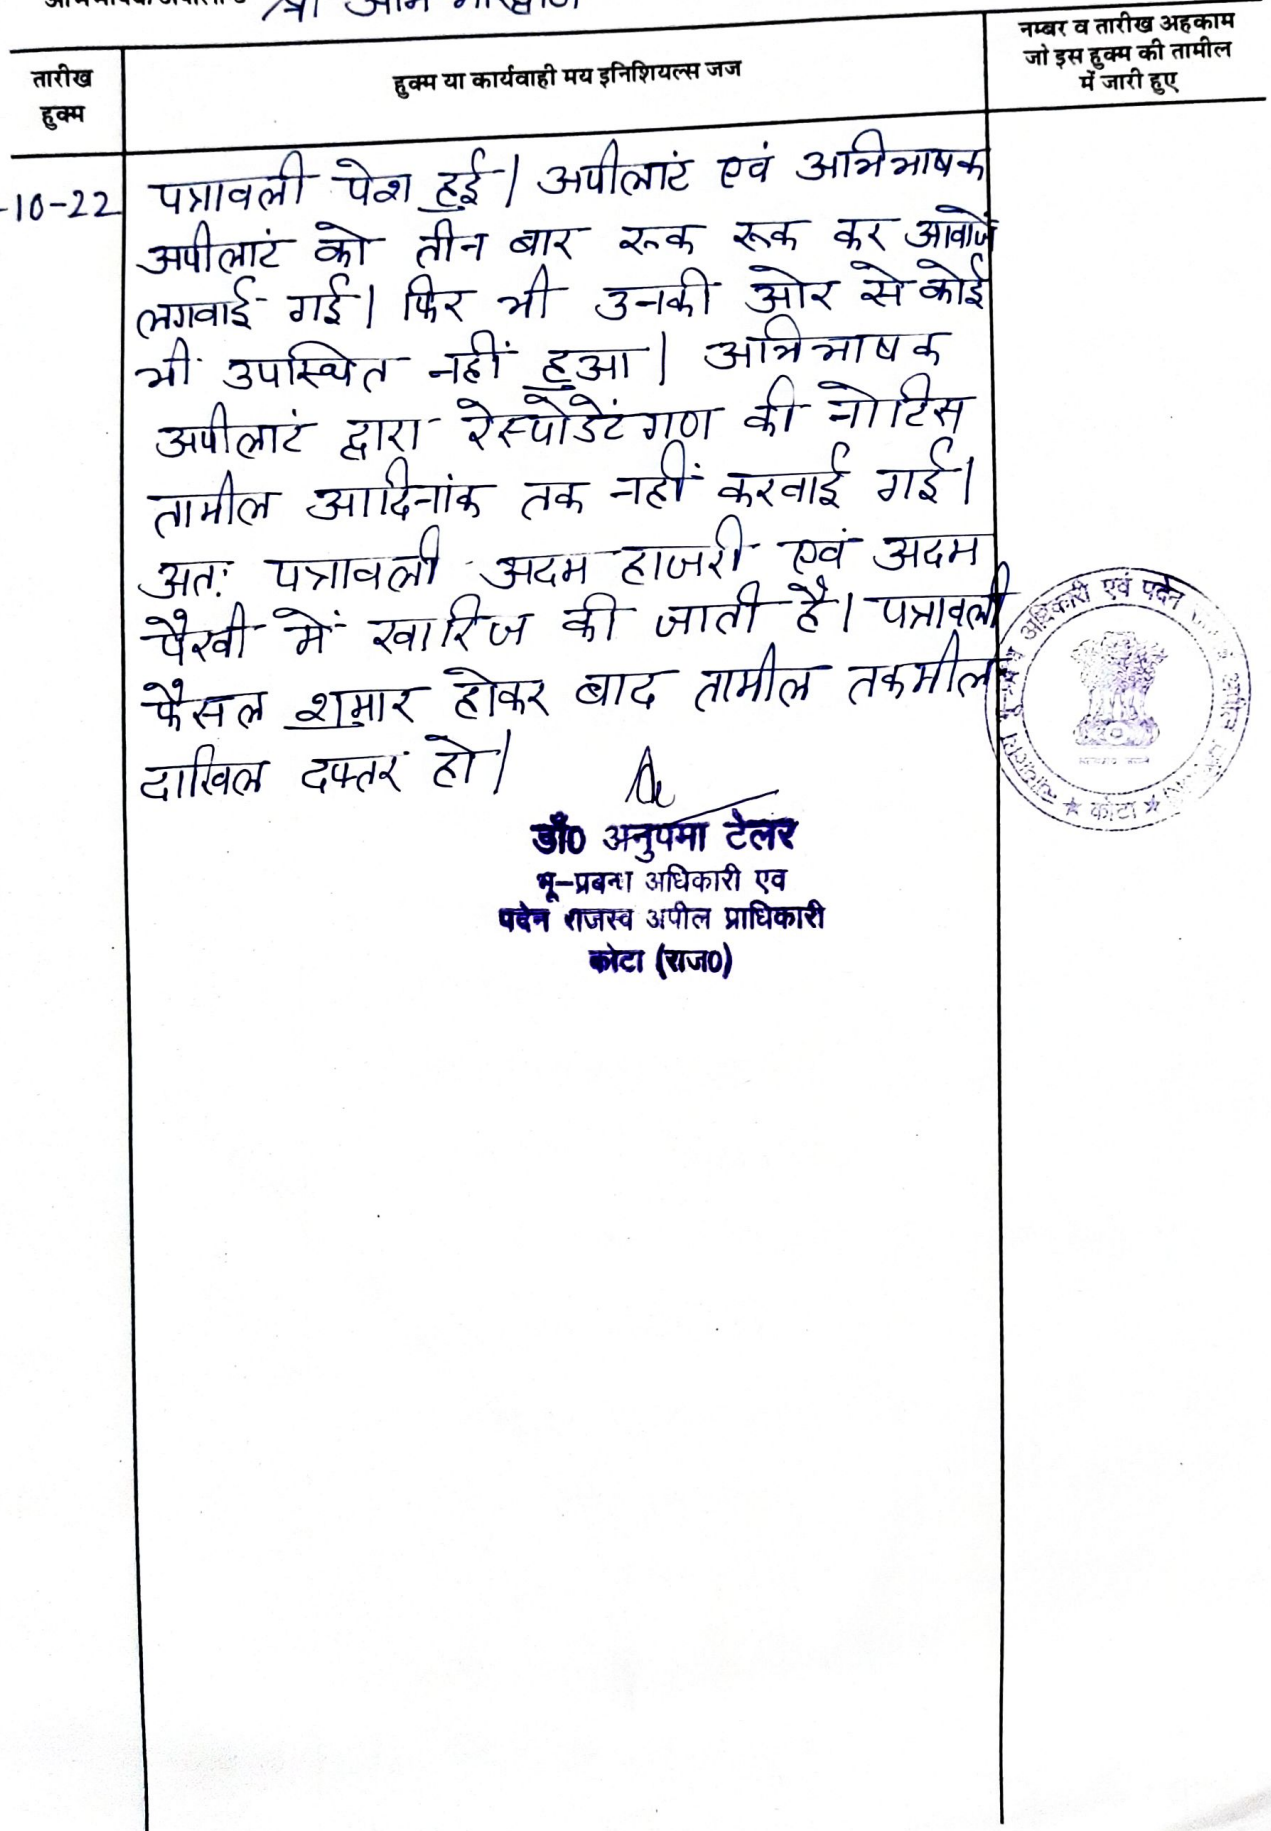 श्री
तारीख
हुक्म
हुक्म या कार्यवाही मय इनिशियल्स जज
नम्बर व तारीख अहकाम
जो इस हुक्म की तामील
में जारी हुए
-10-22
पत्रावली पेश हुई। अपीलांट एवं अभिभाषक
अपीलांट को तीन बार रूक रूक कर आवाजें
लगवाई गई। फिर भी उनकी ओर से कोई
भी उपस्थित नहीं हुआ। अभिभाषक
अपीलांट द्वारा रेस्पोडेंटगण की नोटिस
तामील आदिनांक तक नहीं करवाई गई।
अतः पत्रावली अदम हाजरी एवं अदम
पैरवी में खारिज की जाती है। पत्रावली
फैसल शुमार होकर बाद तामील तकमील
दाखिल दफ्तर हो।
डॉ0 अनुपमा टेलर
भू-प्रबन्ध अधिकारी एव
पदेन राजस्व अपील प्राधिकारी
कोटा (राज0)
अधिकारी एवं पदेन
★ कोटा ★